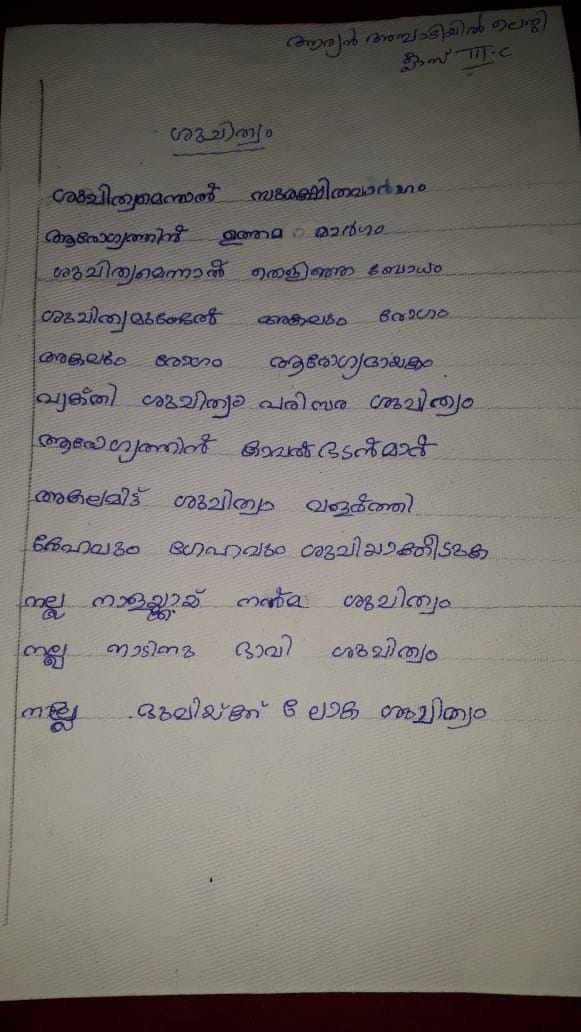 ആര്യൻ അമ്പാടിയിൽ ലെനി
ക്ലാസ് III.C
ശുചിത്വം
ശുചിത്വമെന്നാൽ സുരക്ഷിതമാർഗം
ആരോഗ്യത്തിൻ ഉത്തമ മാർഗം
ശുചിത്വമെന്നാൽ തെളിഞ്ഞ ബോധം
ശുചിത്വമുണ്ടേൽ അകലും രോഗം
അകലും രോഗം ആരോഗ്യദായകം
വ്യക്തി ശുചിത്വം പരിസര ശുചിത്വം
ആരോഗ്യത്തിൻ കാവൽ ഭടൻമാർ
അകലമിട്ട് ശുചിത്വം വളർത്തി
ദേഹവും ഗേഹവും ശുചിയാക്കീടുക
നല്ല നാളെയ്ക്കായ് നൽമ ശുചിത്വം
നല്ല നാടിനു ഭാവി ശുചിത്വം
നല്ല ഭൂവിയ്ക്ക് ലോക ശുചിത്വം